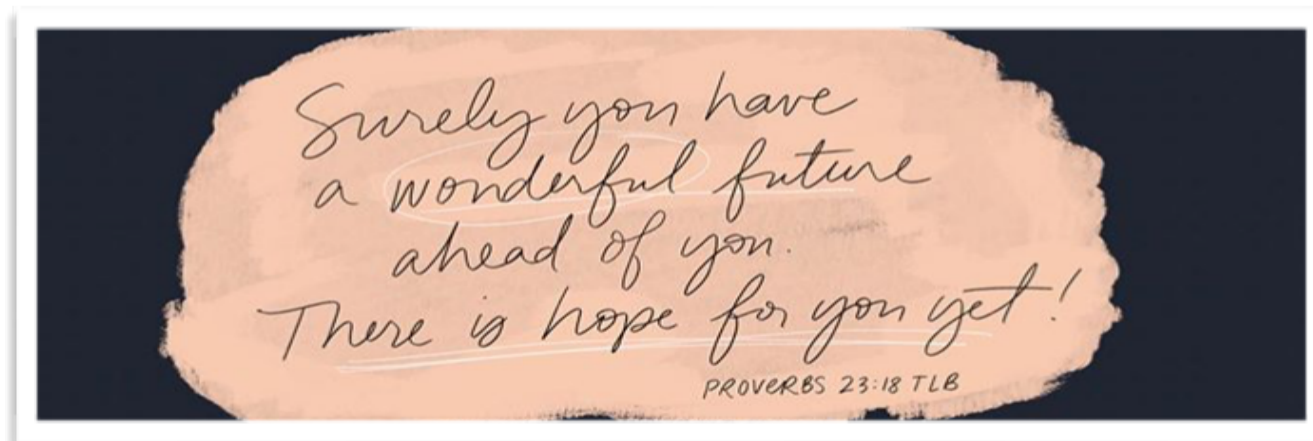 Surely you have
a wonderful future
ahead of you.
There is hope for you yet!
PROVERBS 23:18 TLB